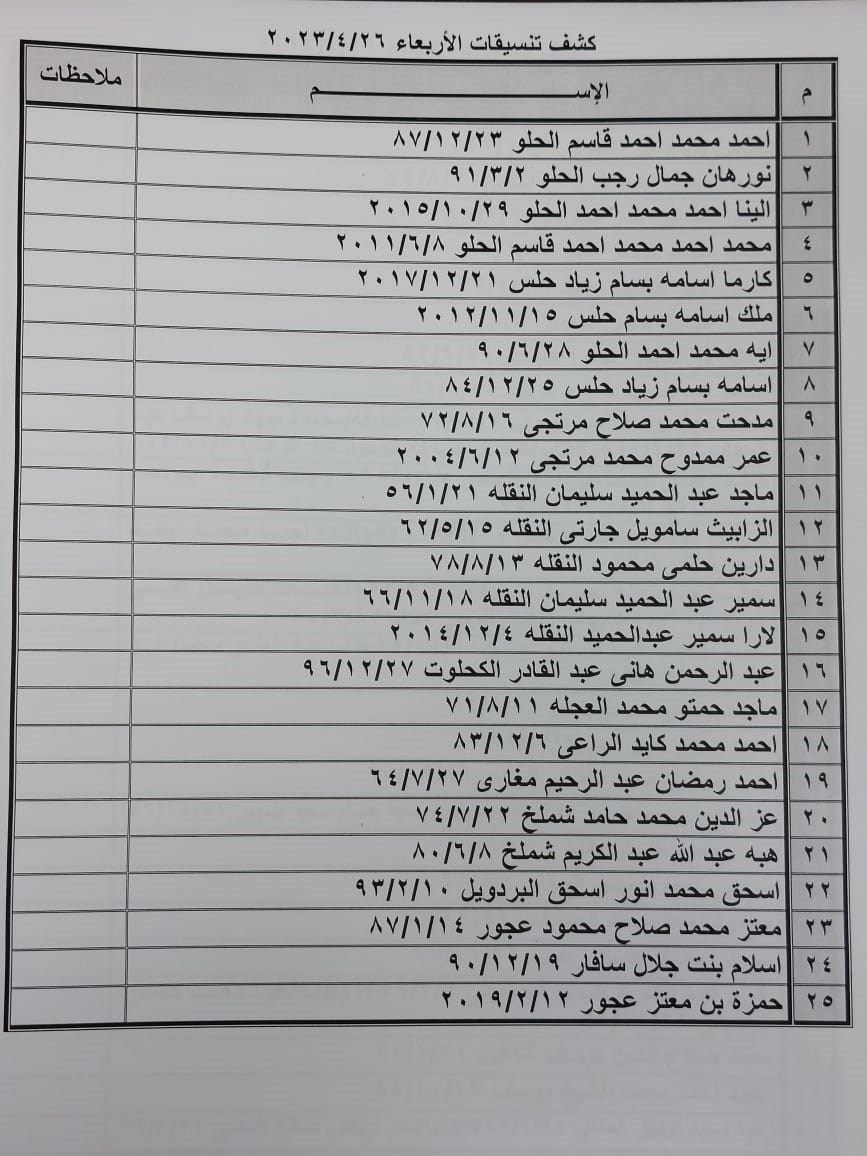 كشف تنسيقات الأربعاء ٢٠٢٣/٤/٢٦
م الإســـــــــــــــــــم ملاحظات
١ احمد محمد احمد قاسم الحلو ٨٧/١٢/٢٣
٢ نورهان جمال رجب الحلو ٩١/٣/٢
٣ الينا احمد محمد احمد الحلو ٢٠١٥/١٠/٢٩
٤ محمد احمد محمد احمد قاسم الحلو ٢٠١١/٦/٨
٥ كارما اسامه بسام زياد حلس ٢٠١٧/١٢/٢١
٦ ملك اسامه بسام حلس ٢٠١٢/١١/١٥
٧ ايه محمد احمد الحلو ٩٠/٦/٢٨
٨ اسامه بسام زياد حلس ٨٤/١٢/٢٥
٩ مدحت محمد صلاح مرتجى ٧٢/٨/١٦
١٠ عمر ممدوح محمد مرتجى ٢٠٠٤/٦/١٢
١١ ماجد عبد الحميد سليمان النقله ٥٦/١/٢١
١٢ الزابيث سامويل جارتى النقله ٦٢/٥/١٥
١٣ دارين حلمى محمود النقله ٧٨/٨/١٣
١٤ سمير عبد الحميد سليمان النقله ٦٦/١١/١٨
١٥ لارا سمير عبدالحميد النقله ٢٠١٤/١٢/٤
١٦ عبد الرحمن هانى عبد القادر الكحلوت ٩٦/١٢/٢٧
١٧ ماجد حمتو محمد العجله ٧١/٨/١١
١٨ احمد محمد كايد الراعى ٨٣/١٢/٦
١٩ احمد رمضان عبد الرحيم مغارى ٦٤/٧/٢٧
٢٠ عز الدين محمد حامد شملخ ٧٤/٧/٢٢
٢١ هبه عبد الله عبد الكريم شملخ ٨٠/٦/٨
٢٢ اسحق محمد انور اسحق البردويل ٩٣/٢/١٠
٢٣ معتز محمد صلاح محمود عجور ٨٧/١/١٤
٢٤ اسلام بنت جلال سافار ٩٠/١٢/١٩
٢٥ حمزة بن معتز عجور ٢٠١٩/٢/١٢